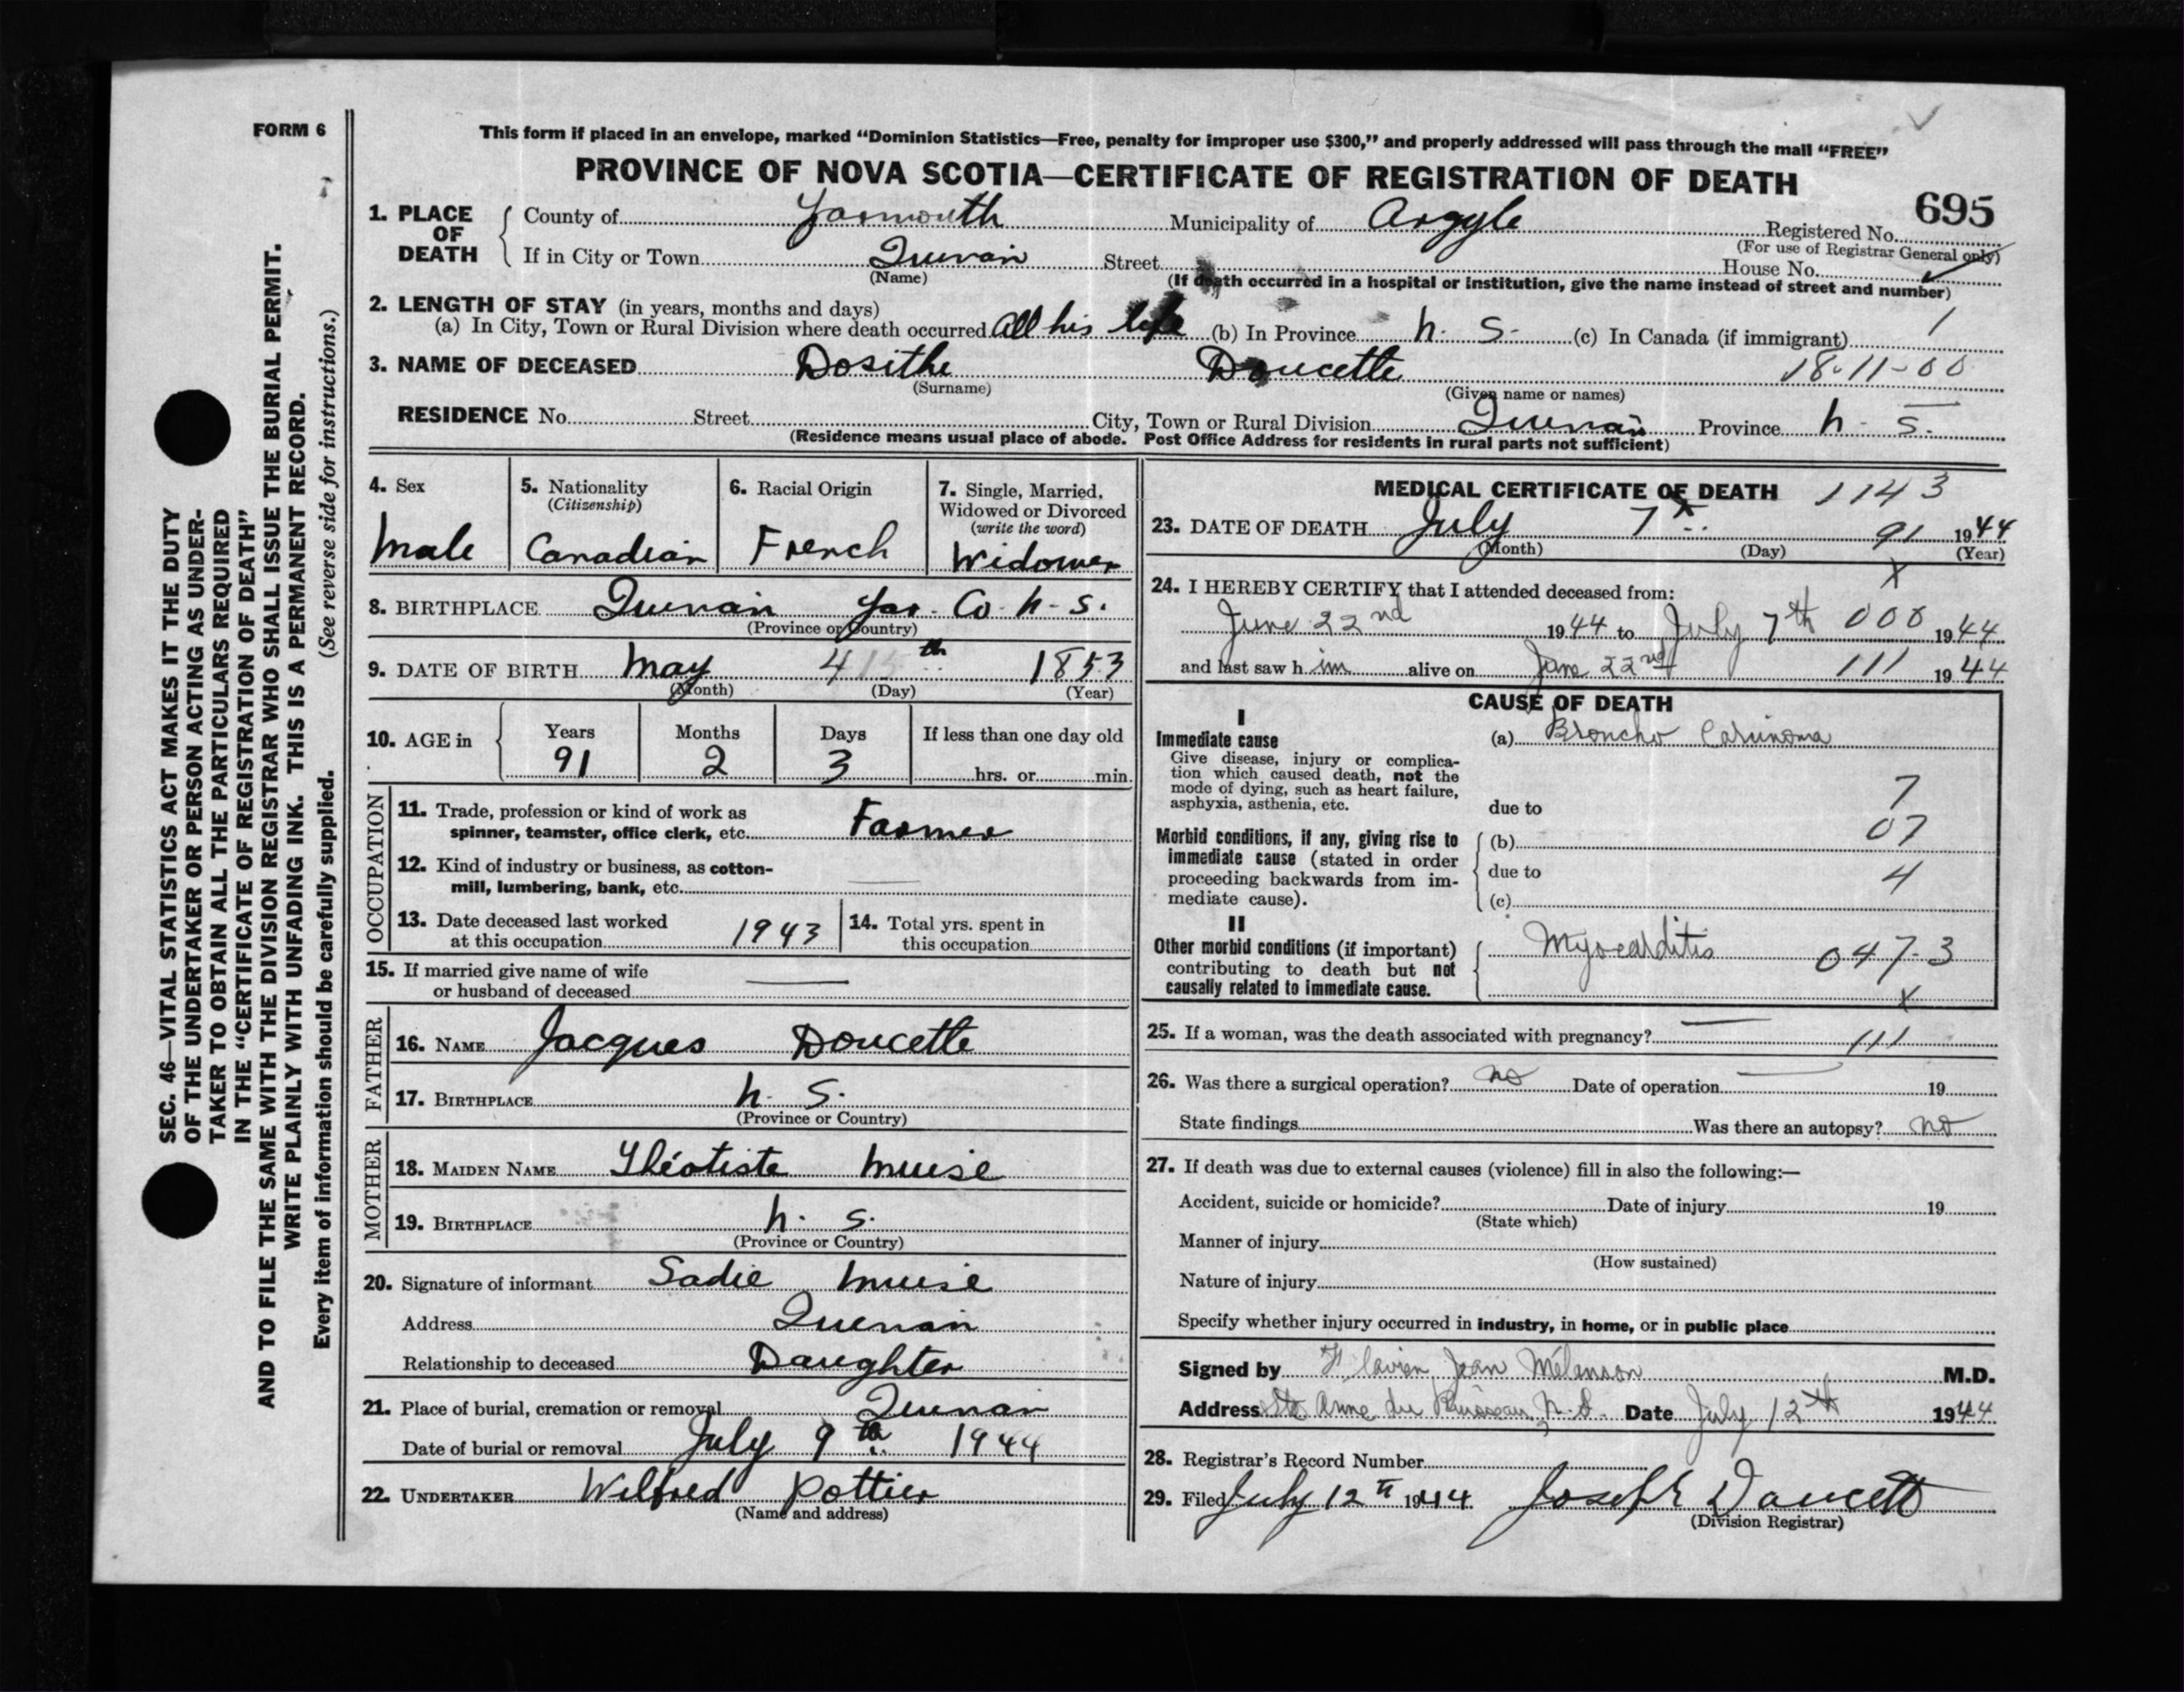 FORM 6
This form if placed in an envelope, marked "Dominion Statistics—Free, penalty for improper use $300," and properly addressed will pass through the mail "FREE"
PROVINCE OF NOVA SCOTIA—CERTIFICATE OF REGISTRATION OF DEATH
695
1. PLACE OF DEATH County of Yarmouth Municipality of Argyle Registered No.
(For use of Registrar General only)
If in City or Town Quinan Street House No.
(Name) (If death occurred in a hospital or institution, give the name instead of street and number)
2. LENGTH OF STAY (in years, months and days)
(a) In City, Town or Rural Division where death occurred All his life (b) In Province N. S. (c) In Canada (if immigrant) 1
3. NAME OF DECEASED Dosithe Doucette 18-11-00
(Surname) (Given name or names)
RESIDENCE No. Street City, Town or Rural Division Quinan Province N. S.
(Residence means usual place of abode. Post Office Address for residents in rural parts not sufficient)
4. Sex Male
5. Nationality (Citizenship) Canadian
6. Racial Origin French
7. Single, Married, Widowed or Divorced (write the word) Widower
8. BIRTHPLACE Quinan Yar. Co. N. S.
(Province or Country)
9. DATE OF BIRTH May 4 th 1853
(Month) (Day) (Year)
10. AGE in Years 91 Months 2 Days 3 If less than one day old hrs. or min.
OCCUPATION
11. Trade, profession or kind of work as
spinner, teamster, office clerk, etc. Farmer
12. Kind of industry or business, as cotton-
mill, lumbering, bank, etc. —
13. Date deceased last worked
at this occupation 1943
14. Total yrs. spent in
this occupation
15. If married give name of wife
or husband of deceased —
FATHER
16. NAME Jacques Doucette
17. BIRTHPLACE N. S.
(Province or Country)
MOTHER
18. MAIDEN NAME Théotiste Muise
19. BIRTHPLACE N. S.
(Province or Country)
20. Signature of informant Sadie Muise
Address Quinan
Relationship to deceased Daughter
21. Place of burial, cremation or removal Quinan
Date of burial or removal July 9th 1944
22. UNDERTAKER Wilfred Pottier
(Name and address)
MEDICAL CERTIFICATE OF DEATH 1143
23. DATE OF DEATH July 7 91 1944
(Month) (Day) (Year)
X
24. I HEREBY CERTIFY that I attended deceased from:
June 22nd 1944 to July 7th 000 1944
and last saw him alive on June 22nd 111 1944
CAUSE OF DEATH
I
Immediate cause (a) Broncho Carinoma
Give disease, injury or complica-
tion which caused death, not the
mode of dying, such as heart failure,
asphyxia, asthenia, etc. due to
7
Morbid conditions, if any, giving rise to
immediate cause (stated in order
proceeding backwards from im-
mediate cause).
(b) 07
due to 4
(c)
II
Other morbid conditions (if important)
contributing to death but not
causally related to immediate cause.
Myocarditis 047-3
X
25. If a woman, was the death associated with pregnancy? — 111
26. Was there a surgical operation? no Date of operation — 19
State findings Was there an autopsy? no
27. If death was due to external causes (violence) fill in also the following:—
Accident, suicide or homicide? Date of injury 19
(State which)
Manner of injury
(How sustained)
Nature of injury
Specify whether injury occurred in industry, in home, or in public place
Signed by Flavien Jean Mélanson M.D.
Address Ste Anne du Ruisseau, N. S. Date July 12th 1944
28. Registrar's Record Number
29. Filed July 12th 1944 Joseph Doucett
(Division Registrar)
SEC. 46—VITAL STATISTICS ACT MAKES IT THE DUTY
OF THE UNDERTAKER OR PERSON ACTING AS UNDER-
TAKER TO OBTAIN ALL THE PARTICULARS REQUIRED
IN THE "CERTIFICATE OF REGISTRATION OF DEATH"
AND TO FILE THE SAME WITH THE DIVISION REGISTRAR WHO SHALL ISSUE THE BURIAL PERMIT.
WRITE PLAINLY WITH UNFADING INK. THIS IS A PERMANENT RECORD.
Every item of information should be carefully supplied. (See reverse side for instructions.)